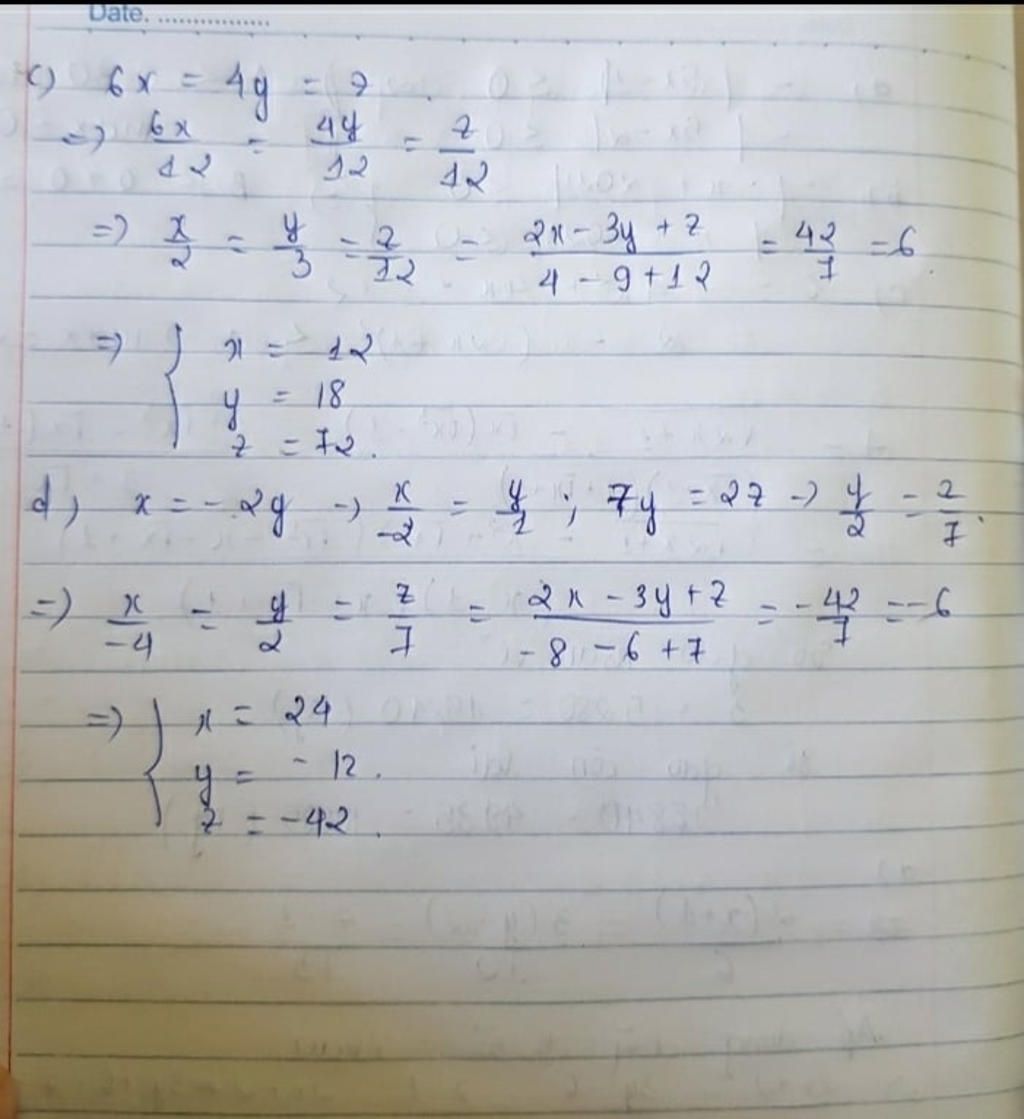 Date. ...............
c) 6x = 4y = z
=> 6x/12 = 4y/12 = z/12
=> x/2 = y/3 = z/12 = (2x - 3y + z)/(4 - 9 + 12) = 42/7 = 6.
=> { x = 12
y = 18
z = 72.
d) x = - 2y -> x/-2 = y/1 ; 7y = 2z -> y/2 = z/7.
=> x/-4 = y/2 = z/7 = (2x - 3y + z)/(-8 - 6 + 7) = -42/7 = -6
=> { x = 24
y = - 12.
z = -42.